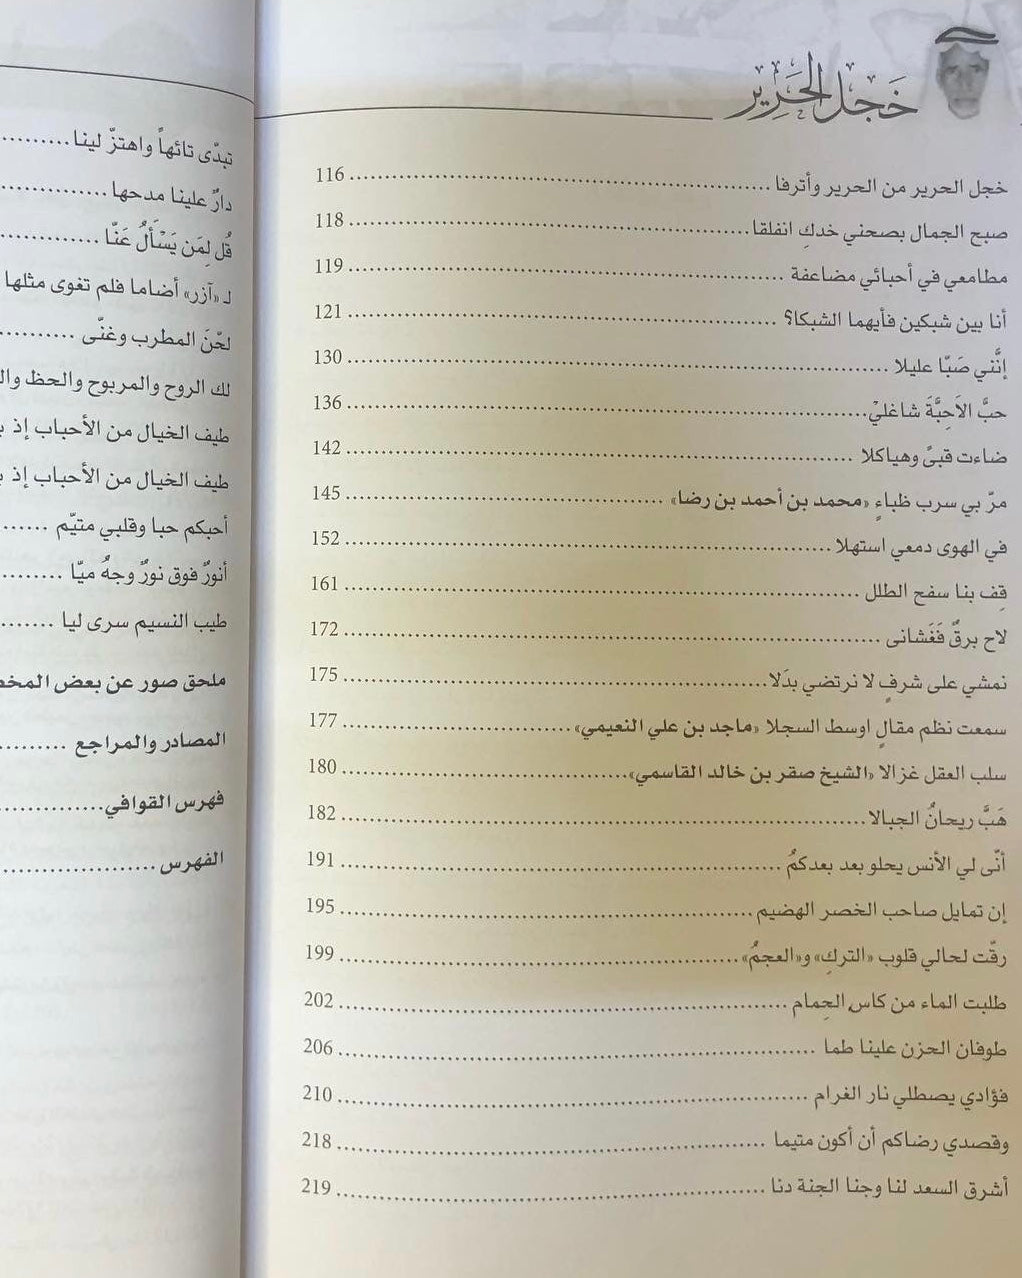 خجل الحرير
خجل الحرير من الحرير وأترفا ........ 116
صبح الجمال بصحني خدكِ انفلقا ........ 118
مطامعي في أحبائي مضاعفة ........ 119
أنا بين شبكين فأيهما الشبكا؟ ........ 121
إنَّني صَبّا عليلا ........ 130
حبَّ الاَحِبَّةَ شاغليْ ........ 136
ضاءت قبىً وهياكلا ........ 142
مرّ بي سرب ظباءٍ «محمد بن أحمد بن رضا» ........ 145
في الهوى دمعي استهلا ........ 152
قِف بنا سفح الطلل ........ 161
لاح برقٌ فَغَشانى ........ 172
نمشي على شرفٍ لا نرتضي بدَلا ........ 175
سمعت نظم مقالٍ اوسط السجلا «ماجد بن علي النعيمي» ........ 177
سلب العقل غزالا «الشيخ صقر بن خالد القاسمي» ........ 180
هَبَّ ريحانُ الجبالا ........ 182
أنّى لي الأنس يحلو بعد بعدكمُ ........ 191
إن تمايل صاحب الخصر الهضيم ........ 195
رقّت لحالي قلوب «التركِ» و«العجمُ» ........ 199
طلبت الماء من كاس الحِمام ........ 202
طوفان الحزن علينا طما ........ 206
فؤادي يصطلي نار الغرام ........ 210
وقصدي رضاكم أن أكون متيما ........ 218
أشرق السعد لنا وجنا الجنة دنا ........ 219
تبدّى تائهاً واهتزّ لينا ........
دارٌ علينا مدحها ........
قُل لِمَن يَسْأَلُ عَنّا ........
لـ «آزر» أضاما فلم تغوى مثلها
لحّنَ المطرب وغنّى ........
لك الروح والمربوح والحظ
طيف الخيال من الأحباب إذ
طيف الخيال من الأحباب إذ
أحبكم حبا وقلبي متيّم ........
أنورٌ فوق نورٌ وجهُ ميّا ........
طيب النسيم سرى ليا ........
ملحق صور عن بعض
المصادر والمراجع ........
فهرس القوافي ........
الفهرس ........